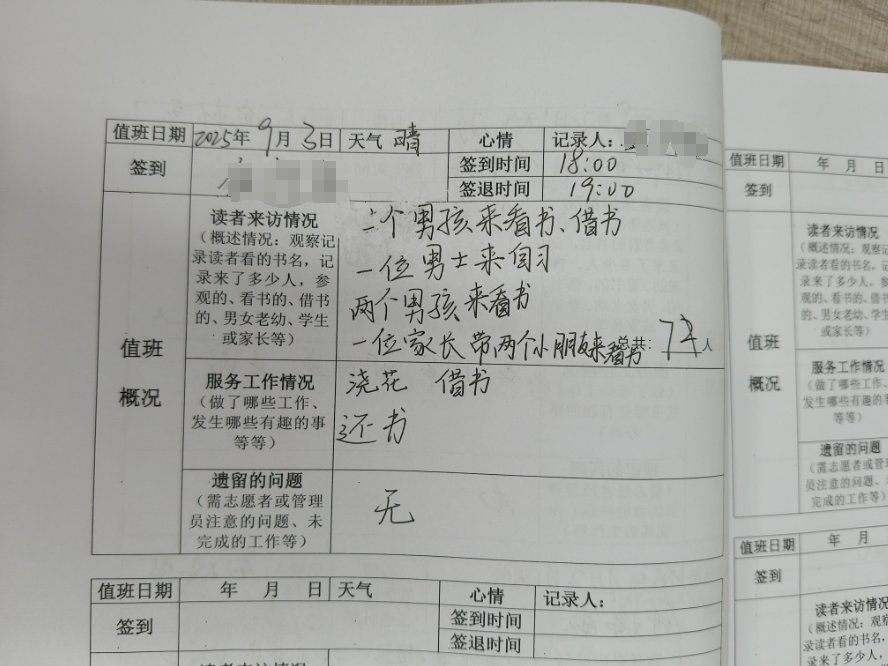 值班日期 2025年 9月 3日 天气 晴 心情 记录人：
签到 签到时间 18:00
签退时间 19:00
值班概况
读者来访情况
（概述情况：观察记
录读者看的书名，记
录来了多少人，参
观的、看书的、借书
的、男女老幼、学生
或家长等）
二个男孩来看书、借书
一位男士来自习
两个男孩来看书
一位家长带两个小朋友来看书 总共： 人
服务工作情况
（做了哪些工作、
发生哪些有趣的事
等等）
浇花 借书
还书
遗留的问题
（需志愿者或管理
员注意的问题、未
完成的工作等）
无
值班日期 年 月 日 天气 心情 记录人：
签到 签到时间
签退时间
读者来访情况
值班日期 年 月 日
签到
值班概况
读者来访情况
（概述情况：观察记
录读者看的书名，记
录来了多少人，参
观的、看书的、借书
的、男女老幼、学生
或家长等）
服务工作情况
（做了哪些工作、
发生哪些有趣的事
等等）
遗留的问题
（需志愿者或管理
员注意的问题、未
完成的工作等）
值班日期 年 月
签到
读者来访情况
（概述情况：观
录读者看的书名
录来了多少人